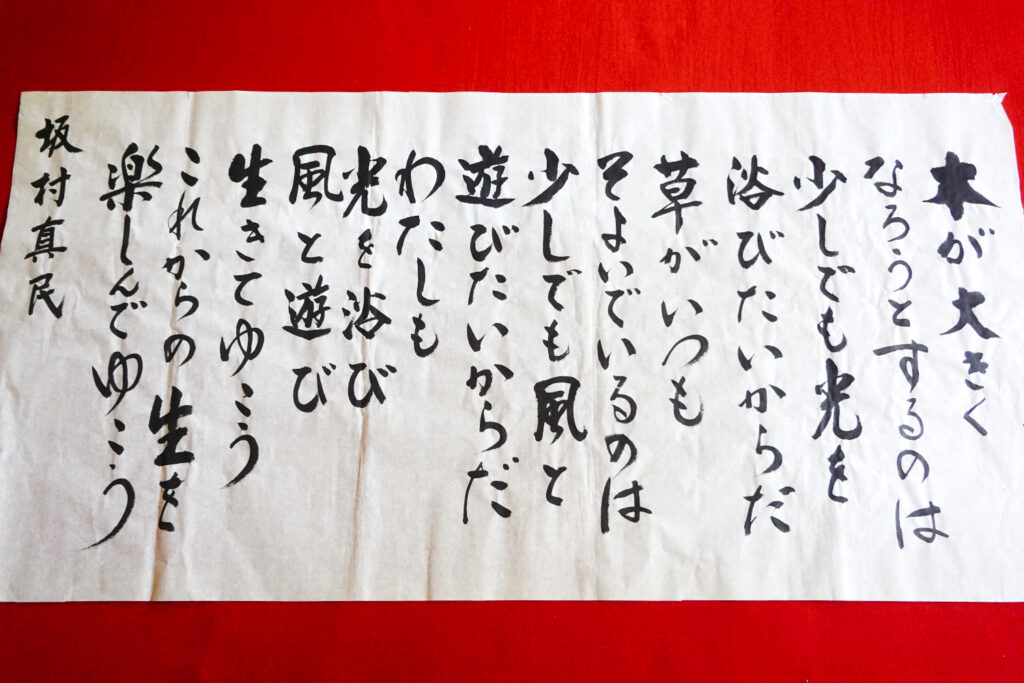 木が大きく
なろうとするのは
少しでも光を
浴びたいからだ
草がいつも
そよいでいるのは
少しでも風と
遊びたいからだ
わたしも
光を浴び
風と遊び
生きてゆこう
これからの生を
楽しんでゆこう
坂村真民